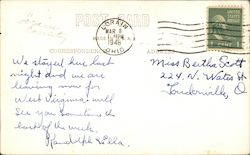 POST CARD
LORAIN
MAR 8
1948
OHIO
CORRESPONDENCE
We stayed here last
night and we are
leaving now for
West Virginia, will
see you sometime the
last of the week.
Randolph & Ella.
Miss Bertha Scott
224 N. Water St
Loudonville, O